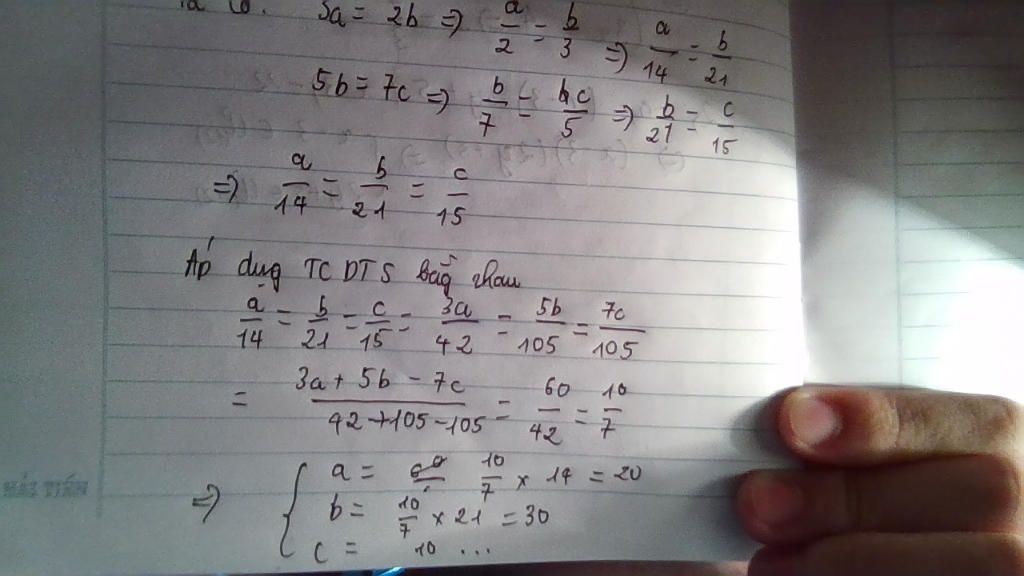 3a = 2b => a/2 = b/3 => a/14 = b/21
5b = 7c => b/7 = c/5 => b/21 = c/15
=> a/14 = b/21 = c/15
Áp dụg TC DTS bằg nhau
a/14 = b/21 = c/15 = 3a/42 = 5b/105 = 7c/105
= (3a + 5b - 7c)/(42 + 105 - 105) = 60/42 = 10/7
=> { a = 10/7 × 14 = 20
b = 10/7 × 21 = 30
c = 10 ...
HẢI TIẾN